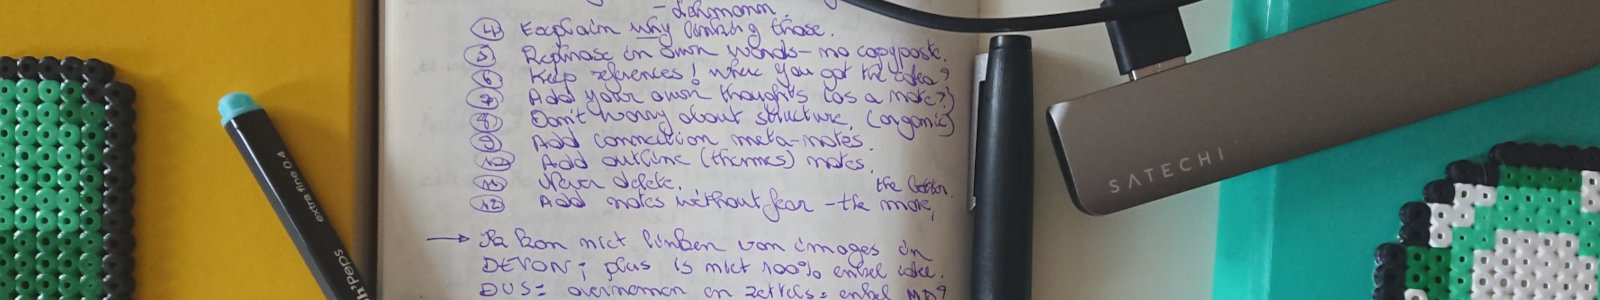 - Lehmann.
④ Explain why linking those.
⑤ Rephrase in own words - no copypaste.
⑥ Keep references! Where you got the idea?
⑦ Add your own thoughts (as a note?)
⑧ Don't worry about structure. (organic)
⑨ Add connection meta-notes.
⑩ Add outline (themes) notes.
⑪ Never delete.
⑫ Add notes without fear - the more, the better.
→ Ik kan niet linken van images in
DEVON; plus is niet 100% enkel idee.
DUS: overnemen en zettels: enkel MD?
extra fine 0.4
h'peps
SATECHI